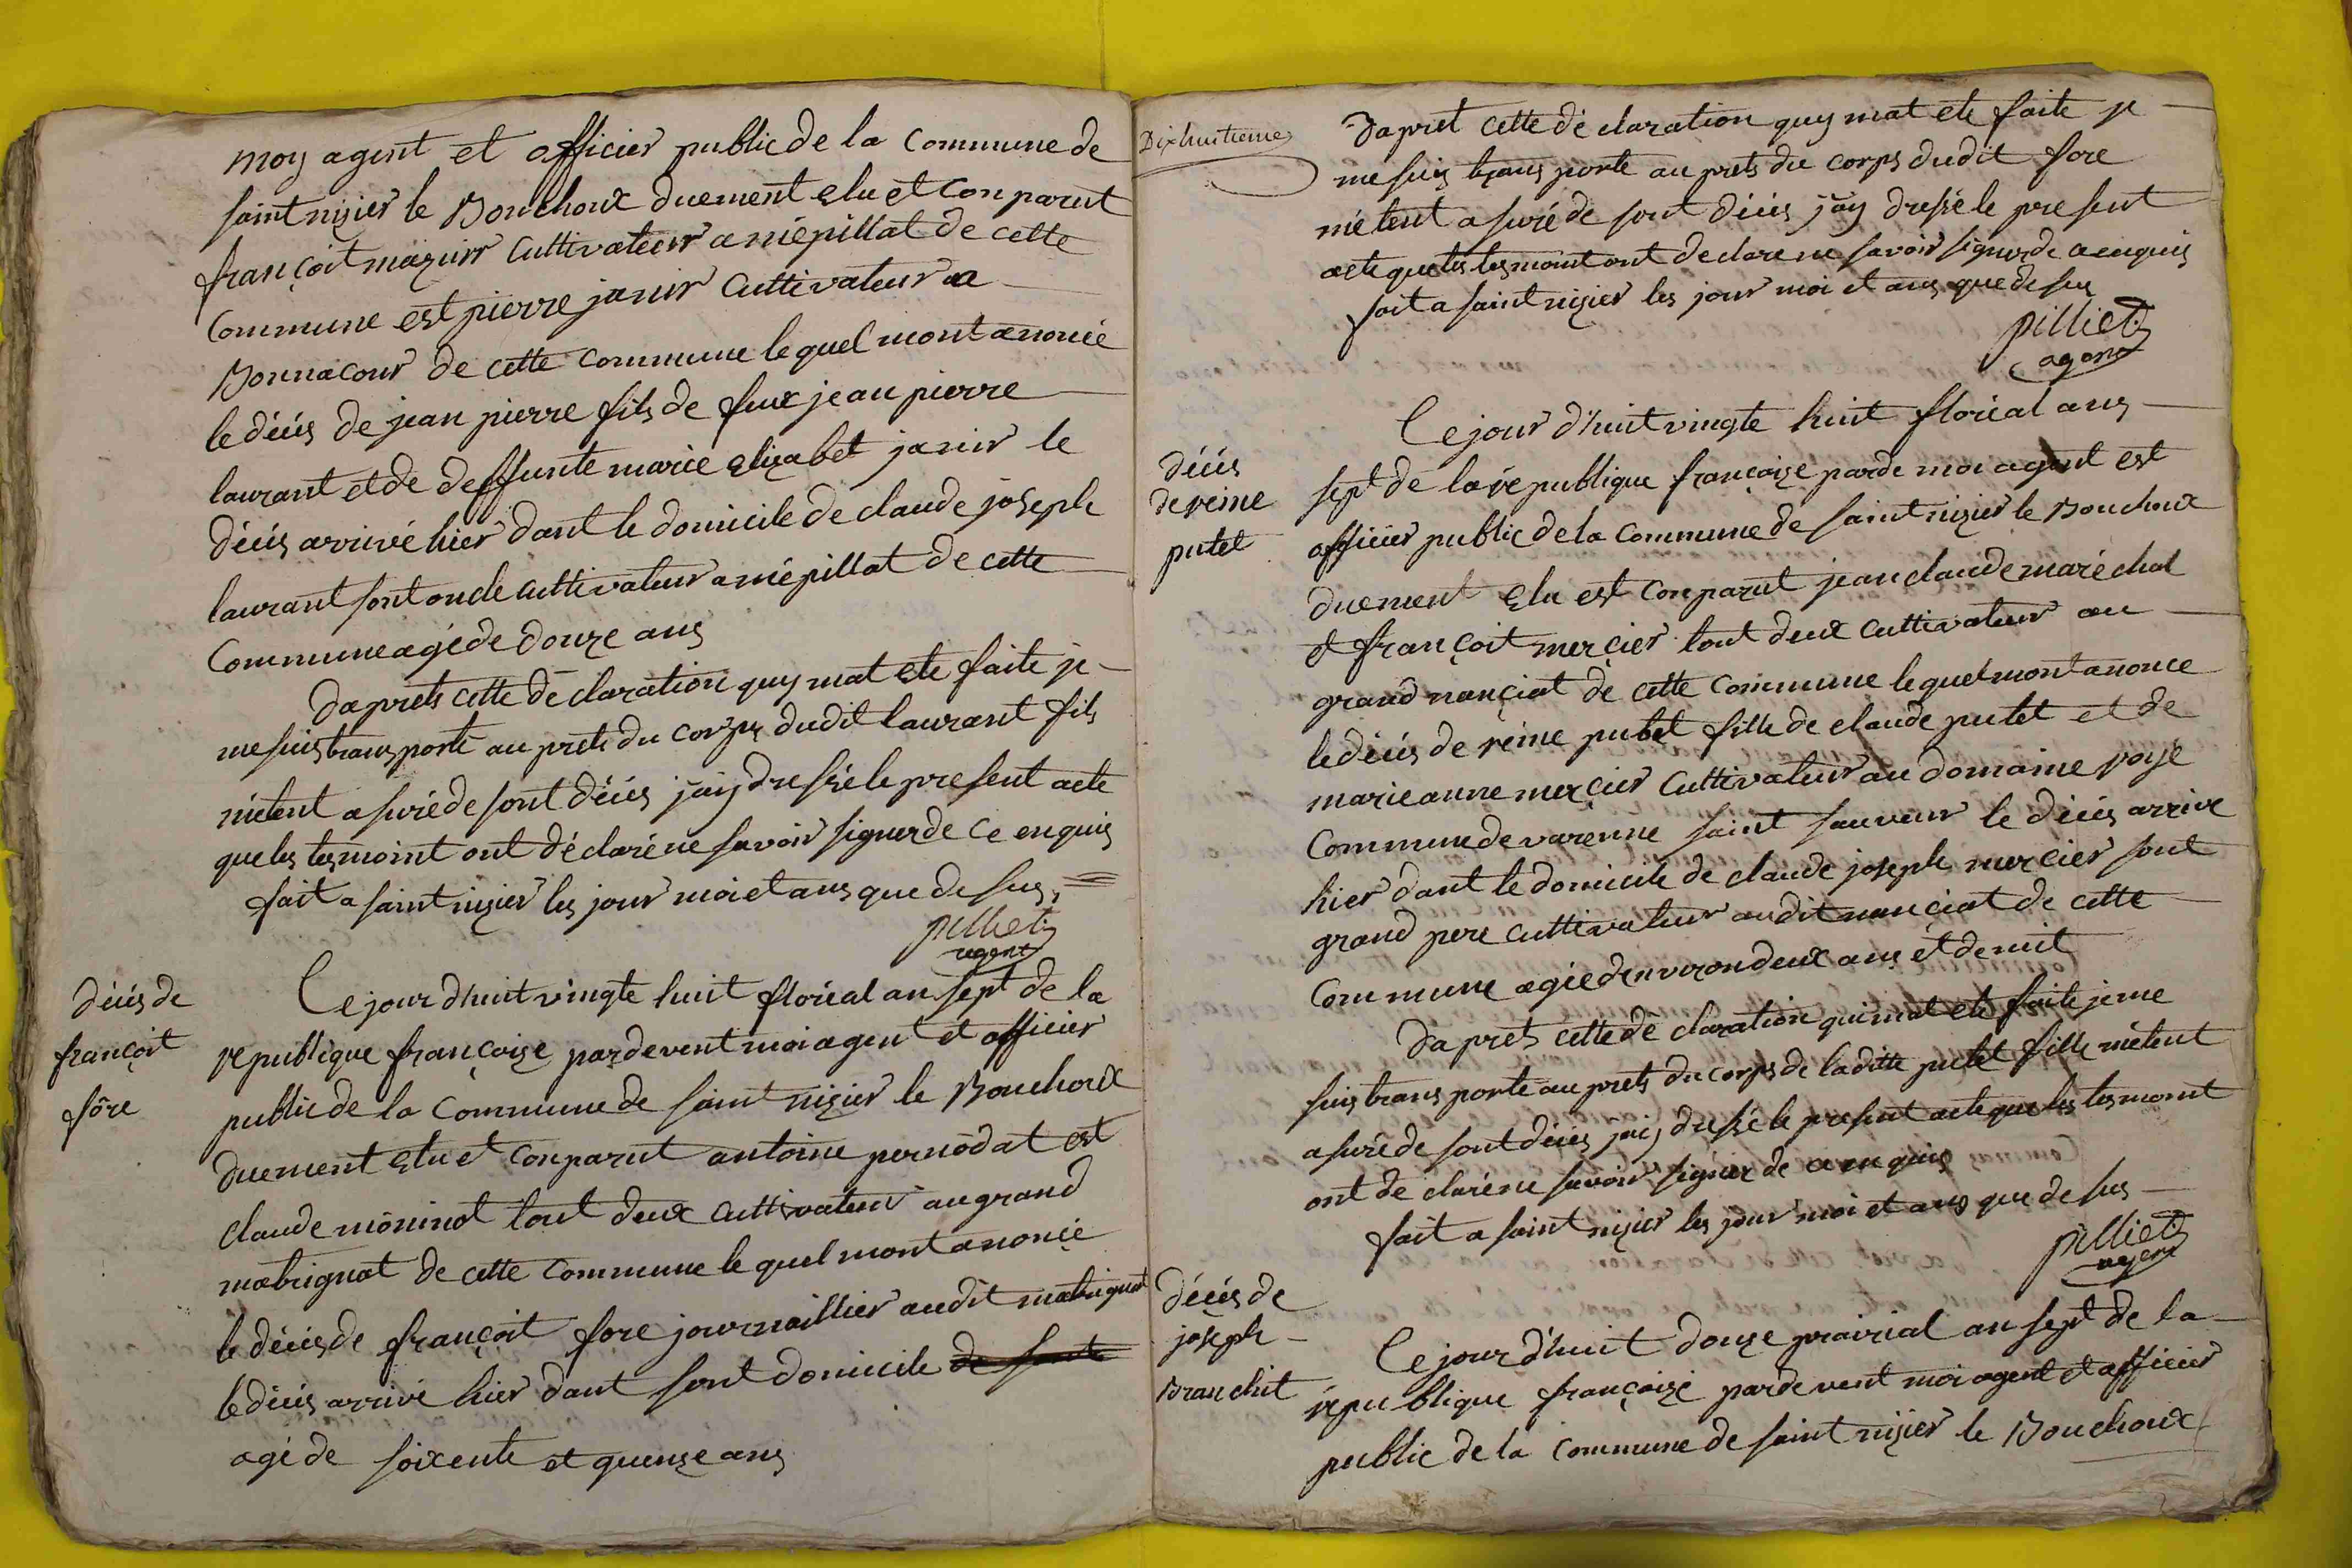 moy agent et officier public de la commune de
saint nizier le Bouchoux duement elu et conparut
françoit mazuir cultivateur a niépillat de cette
commune est pierre janir cultivateur a
Bonnacour de cette commune lequel mont anoncé
le décés de jean pierre fils de feux jean pierre
laurant et de deffunte marie elizabet janir le
décés arrivé hier dant le domicile de claude joseph
laurant sont oncle cultivateur a niépillat de cette
commune agé de douze ans
daprets cette déclaration quy mat ete faite je
me suis transporté au prets du corps dudit laurant fils
mètent asuré de sont décés jaiy dressé le present acte
que les tesmoint ont déclaré ne savoir signer de ce enquis
fait a saint nizier les jour moi et ans que desus
pilliet
agent
décés de
françoit
fôre
Cejourdhuit vingte huit floréal an sept de la
republique françoize pardevent moi agent et officier
public de la commune de saint nizier le Bouchoux
duement elu et conparut antoine pernodat est
claude moninot tout deux cultivateur au grand
matrignat de cette commune lequel mont anoncé
le décés de françoit fore journaillier audit matrignat
le décés arrivé hier dant sont domicile de sont
agé de soixente et quenze ans
Dixhuitieme
Dapret cette déclaration quy mat ete faite je
me suis transporte au prets du corps dudit fore
mètent asuré de sont décés jay dressé le present
acte que les tesmoint ont declare ne savoir signer de ce enquis
fait a saint nizier les jour moi et ans que desus
pilliet
agent
décés
de reine
putet
Cejour d'huit vingte huit floréal ans
sept de la république françoize par de moi agent est
officier public de la commune de saint nizier le Bouchoux
duement elu est conparut jean claude maréchal
et françoit mercier tout deux cultivateur au
grand nanciat de cette commune lequel mont anonce
le décés de reine putet fille de claude putet et de
marie anne mercier cultivateur au domaine
commune de varenne saint sauveur le décés arrive
hier dant le domicile de claude joseph mercier sont
grand pere cultivateur audit nanciat de cette
commune agée denviron deux ans et demit
Daprets cette déclaration qui mat ete faite je me
suis transporte au prets du corps de laditte putet fille mètent
asuré de sont décés jaiy dressé le present acte que les tesmoint
ont declaré ne savoir signer de ce enquis
fait a saint nizier les jour moi et ans que desus
pilliet
agent
décés de
joseph
Branchit
Cejour d'huit douze prairial an sept de la
république françoize pardevent moi agent et officier
public de la commune de saint nizier le Bouchoux